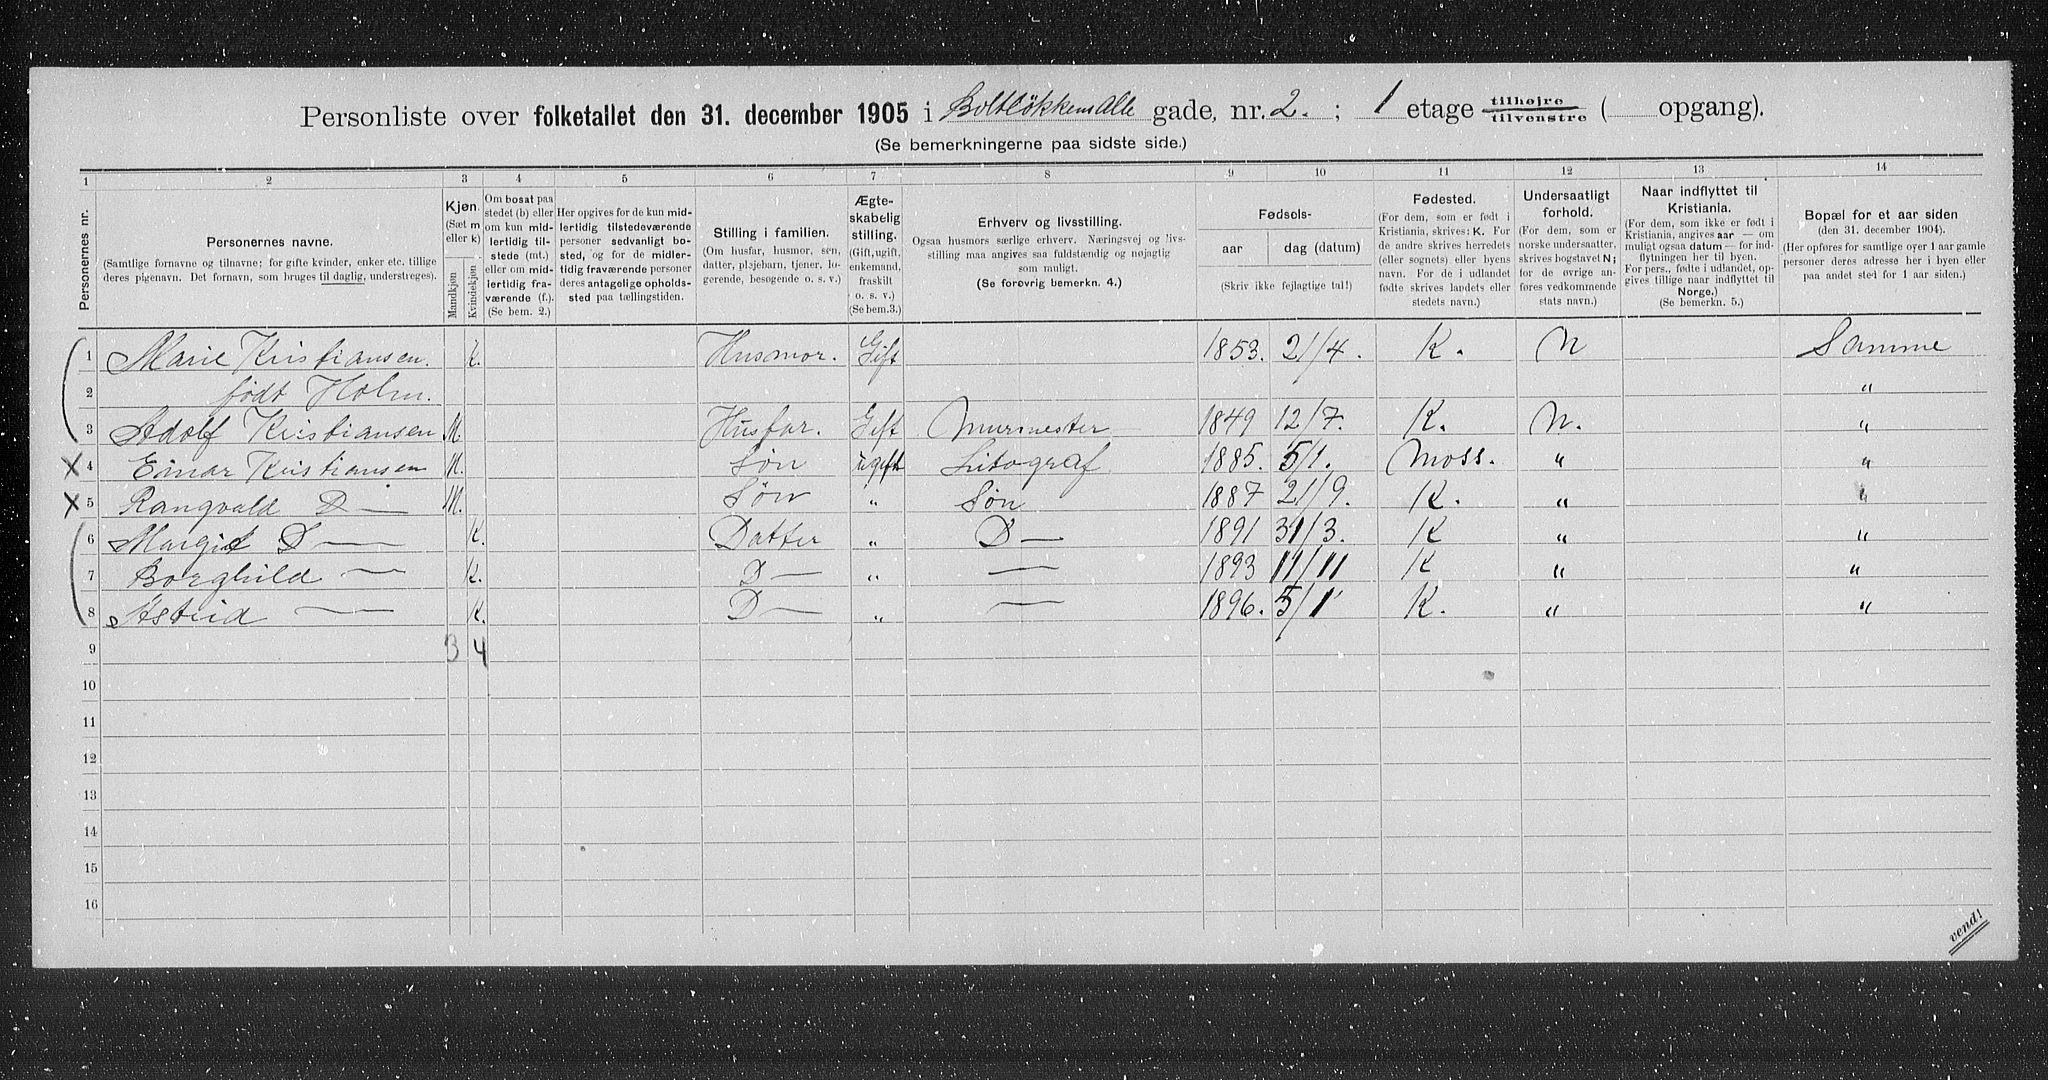 Personliste over folketallet den 31. december 1905 i Boltløkkens Alle gade, nr. 2. ; 1 etage tilhøjre tilvenstre ( opgang).
(Se bemerkningerne paa sidste side.)
1 2 3 4 5 6 7 8 9 10 11 12 13 14
Personernes nr.
Personernes navne.
(Samtlige fornavne og tilnavne; for gifte kvinder, enker etc. tillige
deres pigenavn. Det fornavn, som bruges til daglig, understreges).
Kjøn.
(Sæt m
eller k)
Mandkjøn
Kvindekjøn
Om bosat paa
stedet (b) eller
om kun mid-
lertidig til-
stede (mt.)
eller om mid-
lertidig fra-
værende (f.).
(Se bem. 2.)
Her opgives for de kun mid-
lertidig tilstedeværende
personer sedvanlig bo-
sted, og for de midler-
tidig fraværende personer
deres antagelige opholds-
sted paa tællingstiden.
Stilling i familien.
(Om husfar, husmor, søn,
datter, plejebarn, tjener, lo-
gerende, besøgende o. s. v.)
Ægte-
skabelig
stilling.
(Gift, ugift,
enkemand,
fraskilt
o. s. v.)
(Se bem.3.)
Erhverv og livsstilling.
Ogsaa husmors særlige erhverv. Næringsvej og livs-
stilling maa angives saa fuldstændig og nøjagtig
som muligt.
(Se forøvrig bemerkn. 4.)
Fødsels-
aar
dag (datum)
(Skriv ikke fejlagtige tal!)
Fødested.
(For dem, som er født i
Kristiania, skrives: K. For
de andre skrives herredets
(eller sognets) eller byens
navn. For de i udlandet
fødte skrives landets eller
stedets navn.)
Undersaatligt
forhold.
(For dem, som er
norske undersaatter,
skrives bogstavet N;
for de øvrige an-
føres vedkommende
stats navn.)
Naar indflyttet til
Kristiania.
(For dem, som ikke er født i
Kristiania, angives aar — om
muligt ogsaa datum — for ind-
flytningen her til byen.
For pers., fødte i udlandet, op-
gives tillige naar indflyttet til
Norge.)
(Se bemerkn. 5.)
Bopæl for et aar siden
(den 31. december 1904).
(Her opføres for samtlige over 1 aar gamle
personer deres adresse her i byen eller
paa andet sted for 1 aar siden.)
1 Marie Kristiansen. K. Husmor. Gift 1853. 21/4. K. N Samme
2 født Holm. "
3 Adolf Kristiansen M. Husfar. Gift Murmester 1849 12/7. K. N. "
4 Einar Kristiansen M. Søn ugift Litograf 1885. 5/1. Moss. " "
5 Rangvald D — M. Søn " Søn 1887 21/9. K. " "
6 Margit D — K. Datter " D — 1891 31/3. K " "
7 Borghild — K. D — " — 1893 11/11 K " "
8 Astrid — K. D — " — 1896. 5/1 K. " "
9 3 4
10
11
12
13
14
15
16
vend!